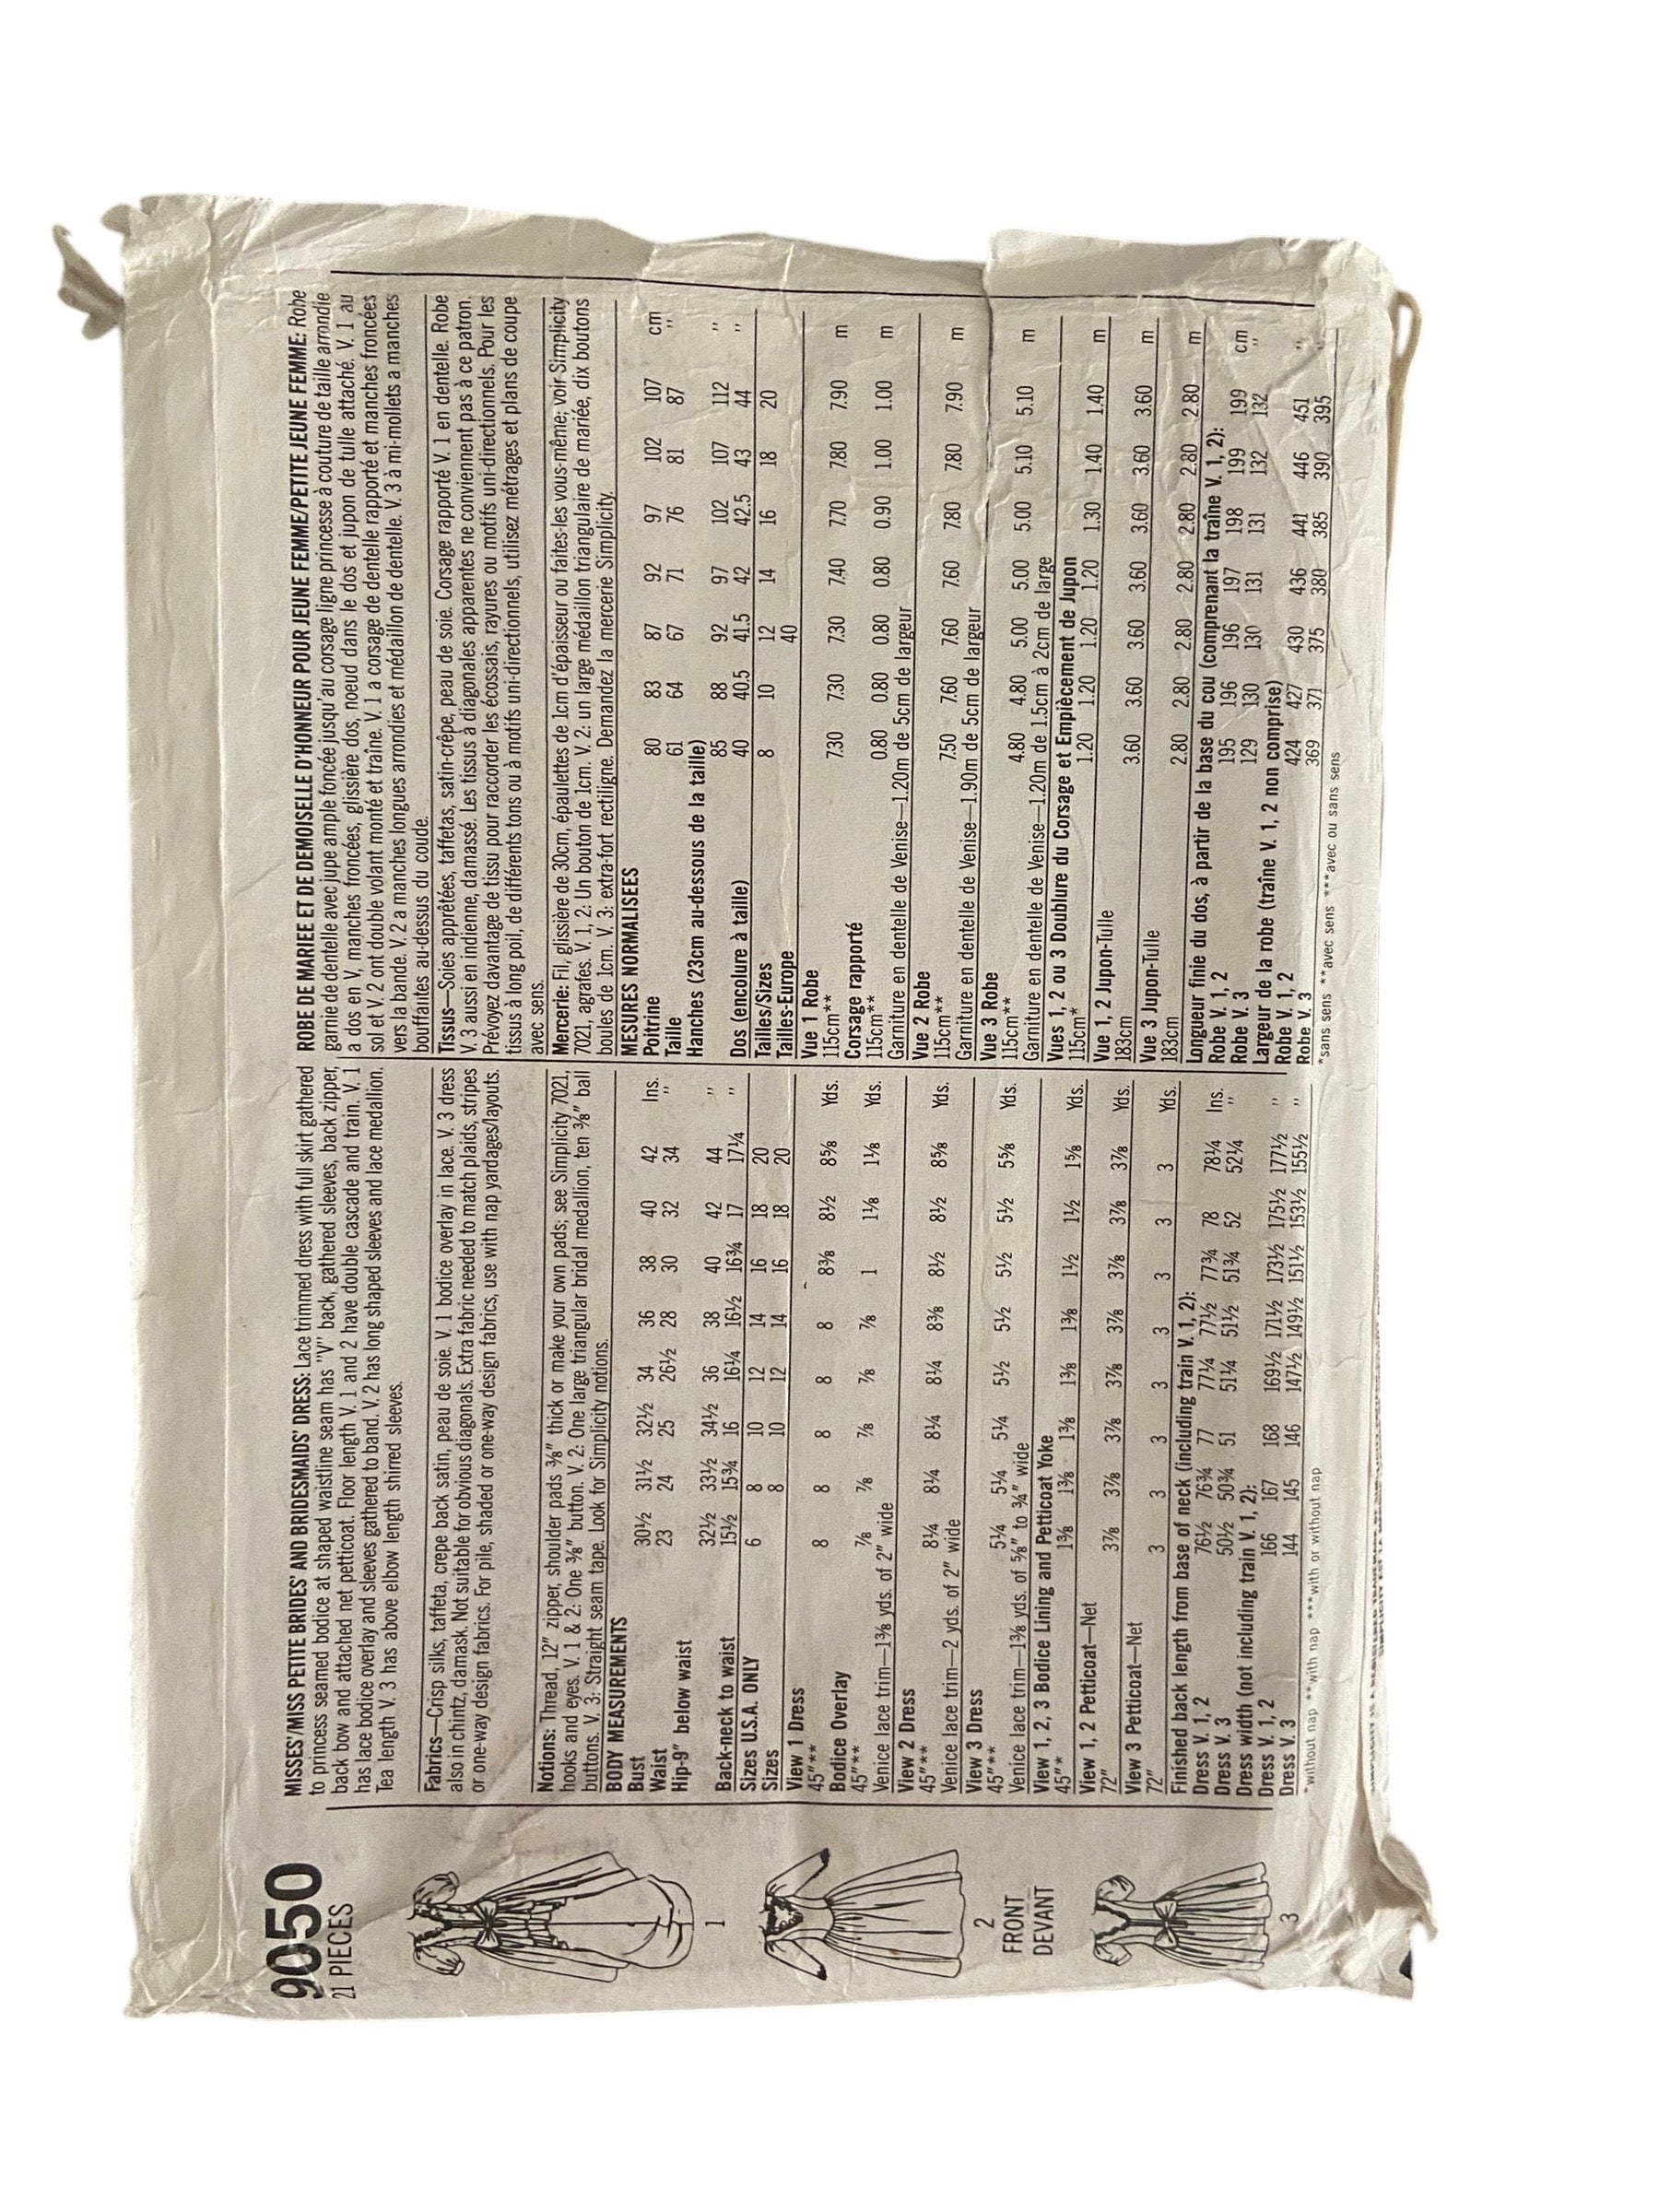 9050
21 PIECES
1
2
FRONT
DEVANT
3
MISSES'/MISS PETITE BRIDES' AND BRIDESMAIDS' DRESS: Lace trimmed dress with full skirt gathered
to princess seamed bodice at shaped waistline seam has "V" back, gathered sleeves, back zipper,
back bow and attached net petticoat. Floor length V. 1 and 2 have double cascade and train. V. 1
has lace bodice overlay and sleeves gathered to band. V. 2 has long shaped sleeves and lace medallion.
Tea length V. 3 has above elbow length shirred sleeves.
Fabrics—Crisp silks, taffeta, crepe back satin, peau de soie. V. 1 bodice overlay in lace. V. 3 dress
also in chintz, damask. Not suitable for obvious diagonals. Extra fabric needed to match plaids, stripes
or one-way design fabrics. For pile, shaded or one-way design fabrics, use with nap yardages/layouts.
Notions: Thread, 12" zipper, shoulder pads ⅜" thick or make your own pads; see Simplicity 7021,
hooks and eyes. V. 1 & 2: One ⅜" button. V. 2: One large triangular bridal medallion, ten ⅜" ball
buttons. V. 3: Straight seam tape. Look for Simplicity notions.
BODY MEASUREMENTS
Bust 30½ 31½ 32½ 34 36 38 40 42 Ins.
Waist 23 24 25 26½ 28 30 32 34 "
Hip-9" below waist
32½ 33½ 34½ 36 38 40 42 44 "
Back-neck to waist 15½ 15¾ 16 16¼ 16½ 16¾ 17 17¼ "
Sizes U.S.A. ONLY 6 8 10 12 14 16 18 20
Sizes 8 10 12 14 16 18 20
View 1 Dress
45"** 8 8 8 8 8 8⅜ 8½ 8⅝ Yds.
Bodice Overlay
45"** ⅞ ⅞ ⅞ ⅞ ⅞ 1 1⅛ 1⅛ Yds.
Venice lace trim—1⅜ yds. of 2" wide
View 2 Dress
45"** 8¼ 8¼ 8¼ 8¼ 8⅜ 8½ 8½ 8⅝ Yds.
Venice lace trim—2 yds. of 2" wide
View 3 Dress
45"** 5¼ 5¼ 5¼ 5½ 5½ 5½ 5½ 5⅝ Yds.
Venice lace trim—1⅜ yds. of ⅝" to ¾" wide
View 1, 2, 3 Bodice Lining and Petticoat Yoke
45"* 1⅜ 1⅜ 1⅜ 1⅜ 1⅜ 1½ 1½ 1⅝ Yds.
View 1, 2 Petticoat—Net
72" 3⅞ 3⅞ 3⅞ 3⅞ 3⅞ 3⅞ 3⅞ 3⅞ Yds.
View 3 Petticoat—Net
72" 3 3 3 3 3 3 3 3 Yds.
Finished back length from base of neck (including train V. 1, 2):
Dress V. 1, 2 76½ 76¾ 77 77¼ 77½ 77¾ 78 78¼ Ins.
Dress V. 3 50½ 50¾ 51 51¼ 51½ 51¾ 52 52¼ "
Dress width (not including train V. 1, 2):
Dress V. 1, 2 166 167 168 169½ 171½ 173½ 175½ 177½ "
Dress V. 3 144 145 146 147½ 149½ 151½ 153½ 155½ "
*without nap **with nap ***with or without nap
ROBE DE MARIEE ET DE DEMOISELLE D'HONNEUR POUR JEUNE FEMME/PETITE JEUNE FEMME: Robe
garnie de dentelle avec jupe ample foncée jusqu'au corsage ligne princesse à couture de taille arrondie
a dos en V, manches froncées, glissière dos, noeud dans le dos et jupon de tulle attaché. V. 1 au
sol et V. 2 ont double volant monté et traîne. V. 1 a corsage de dentelle rapporté et manches froncées
vers la bande. V. 2 a manches longues arrondies et médaillon de dentelle. V. 3 à mi-mollets a manches
bouffantes au-dessus du coude.
Tissus—Soies apprêtées, taffetas, satin-crêpe, peau de soie. Corsage rapporté V. 1 en dentelle. Robe
V. 3 aussi en indienne, damassé. Les tissus à diagonales apparentes ne conviennent pas à ce patron.
Prévoyez davantage de tissu pour raccorder les écossais, rayures ou motifs uni-directionnels. Pour les
tissus à long poil, de différents tons ou à motifs uni-directionnels, utilisez métrages et plans de coupe
avec sens.
Mercerie: Fil, glissière de 30cm, épaulettes de 1cm d'épaisseur ou faites-les vous-même; voir Simplicity
7021, agrafes. V. 1, 2: Un bouton de 1cm. V. 2: un large médaillon triangulaire de mariée, dix boutons
boules de 1cm. V. 3: extra-fort rectiligne. Demandez la mercerie Simplicity.
MESURES NORMALISEES
Poitrine 80 83 87 92 97 102 107 cm
Taille 61 64 67 71 76 81 87 "
Hanches (23cm au-dessous de la taille)
85 88 92 97 102 107 112 "
Dos (encolure à taille) 40 40.5 41.5 42 42.5 43 44 "
Tailles/Sizes 8 10 12 14 16 18 20
Tailles-Europe 40
Vue 1 Robe
115cm** 7.30 7.30 7.30 7.40 7.70 7.80 7.90 m
Corsage rapporté
115cm** 0.80 0.80 0.80 0.80 0.90 1.00 1.00 m
Garniture en dentelle de Venise—1.20m de 5cm de largeur
Vue 2 Robe
115cm** 7.50 7.60 7.60 7.60 7.80 7.80 7.90 m
Garniture en dentelle de Venise—1.90m de 5cm de largeur
Vue 3 Robe
115cm** 4.80 4.80 5.00 5.00 5.00 5.10 5.10 m
Garniture en dentelle de Venise—1.20m de 1.5cm à 2cm de large
Vues 1, 2 ou 3 Doublure du Corsage et Empiècement de Jupon
115cm* 1.20 1.20 1.20 1.20 1.30 1.40 1.40 m
Vue 1, 2 Jupon-Tulle
183cm 3.60 3.60 3.60 3.60 3.60 3.60 3.60 m
Vue 3 Jupon-Tulle
183cm 2.80 2.80 2.80 2.80 2.80 2.80 2.80 m
Longueur finie du dos, à partir de la base du cou (comprenant la traîne V. 1, 2):
Robe V. 1, 2 195 196 196 197 198 199 199 cm
Robe V. 3 129 130 130 131 131 132 132 "
Largeur de la robe (traîne V. 1, 2 non comprise)
Robe V. 1, 2 424 427 430 436 441 446 451 "
Robe V. 3 369 371 375 380 385 390 395 "
*sans sens **avec sens ***avec ou sans sens